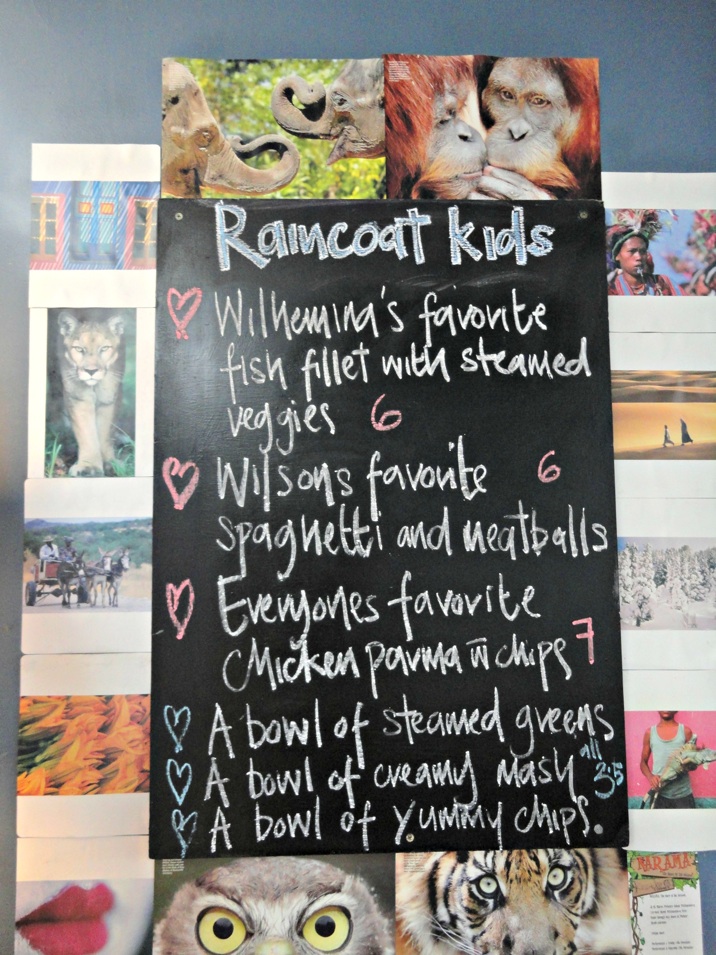 Raincoat kids
Wilhemina's favorite
fish fillet with steamed
veggies 6
Wilsons favorite 6
spaghetti and meatballs
Everyones favorite
Chicken parma w chips 7
A bowl of steamed greens
A bowl of creamy mash all 3.5
A bowl of yummy chips.
NARAMA